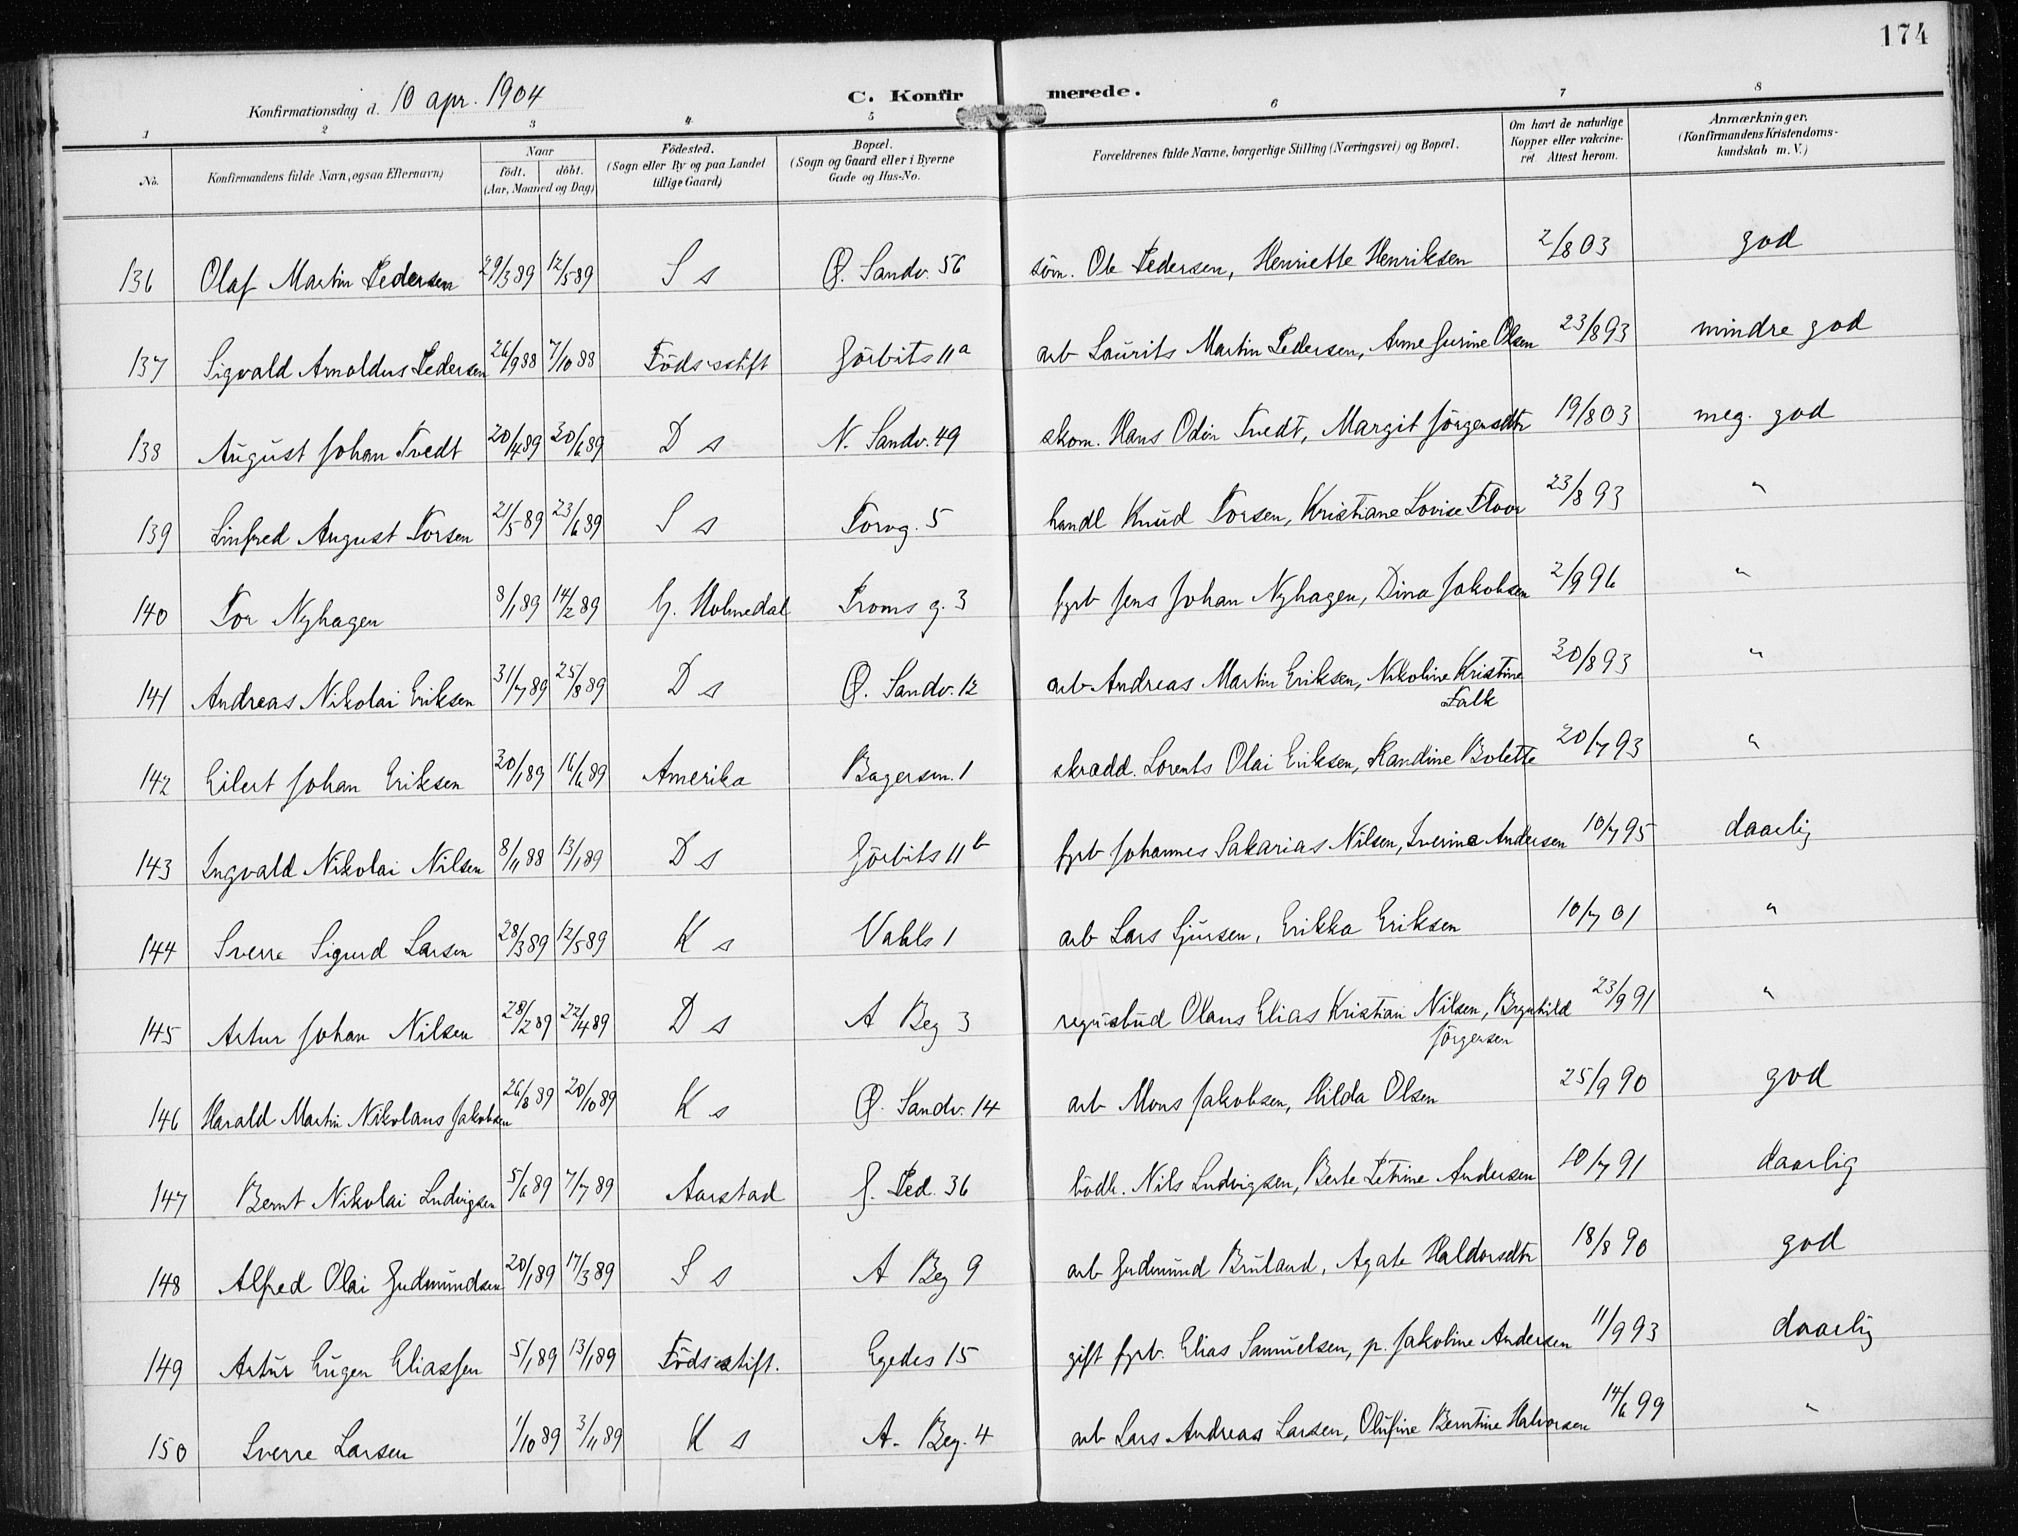 174
Konfirmationsdag d. 10 apr. 1904 C. Konfirmerede.
1 2 3 4 5 6 7 8
No. Konfirmandens fulde Navn, ogsaa Efternavn) Naar født. døbt. (Aar, Maaned og Dag) Fødested. (Sogn eller By og paa Landet tillige Gaard) Bopæl. (Sogn og Gaard eller i Byerne Gade og Hus-No. Forældrenes fulde Navne, borgerlige Stilling (Næringsvei) og Bopæl. Om havt de naturlige Kopper eller vaccineret. Attest herom. Anmærkninger. (Konfirmandens Kristendomskundskab m. V.)
136 Olaf Martin Pedersen 29/3 89 12/5 89 S s Ø. Sandv. 56 søm. Ole Pedersen, Henriette Henriksen 2/8 03 god
137 Sigvald Arnoldus Pedersen 26/9 88 7/10 88 Födsstift Jörbits 11a arb Laurits Martin Pedersen, Anne Jurine Olsen 23/8 93 mindre god
138 August Johan Tvedt 20/4 89 30/6 89 D s N. Sandv. 49 skom. Hans Odin Tvedt, Margit Jörgensdtr 19/8 03 meg. god
139 Linfred August Torsen 21/5 89 23/6 89 S s Torvg. 5 handl Knud Torsen, Kristiane Lovise Floor 23/8 93 "
140 Tor Nyhagen 8/1 89 14/2 89 G. Holmedal Troms g. 3 fyrb Jens Johan Nyhagen, Dina Jakobsen 2/9 96 "
141 Andreas Nikolai Eriksen 31/7 89 25/8 89 D s Ø. Sandv. 12 arb Andreas Martin Eriksen, Nikoline Kristine
Falk 30/8 93 "
142 Eilert Johan Eriksen 20/1 89 16/6 89 Amerika Bagersm. 1 skrædd. Lorents Olai Eriksen, Randine Bolette 20/7 93 "
143 Ingvald Nikolai Nilsen 8/11 88 13/1 89 D s Jörbits 11b fyrb Johannes Sakarias Nilsen, Iverine Andersen 10/7 95 daarlig
144 Sverre Sigurd Larsen 28/3 89 12/5 89 K s Vahls 1 arb Lars Sjursen, Erikka Eriksen 10/7 01 "
145 Artur Johan Nilsen 28/2 89 22/4 89 D s A Beg 3 Olaus Elias Kristian Nilsen, Brynhild
Jörgensen 23/9 91 "
146 Harald Martin Nikolaus Jakobsen 26/8 89 20/10 89 K s Ø. Sandv. 14 arb Mons Jakobsen, Hilda Olsen 25/9 90 god
147 Bernt Nikolai Ludvigsen 5/6 89 7/7 89 Aarstad J. Ped. 36 bödk. Nils Ludvigsen, Berte Petrine Andersen 10/7 91 daarlig
148 Alfred Olai Gudmundsen 20/1 89 17/3 89 S s A Beg 9 arb Gudmund Bruland, Agate Haldorsdtr 18/8 90 god
149 Artur Eugen Eliassen 5/1 89 13/1 89 Födsstift. Egedes 15 gift fyrb. Elias Samuelsen, p. Jakobine Andersen 11/9 93 daarlig
150 Sverre Larsen 1/10 89 3/11 89 K s A. Beg. 4 arb Lars Andreas Larsen, Olufine Berntine Halvorsen 14/6 99 "